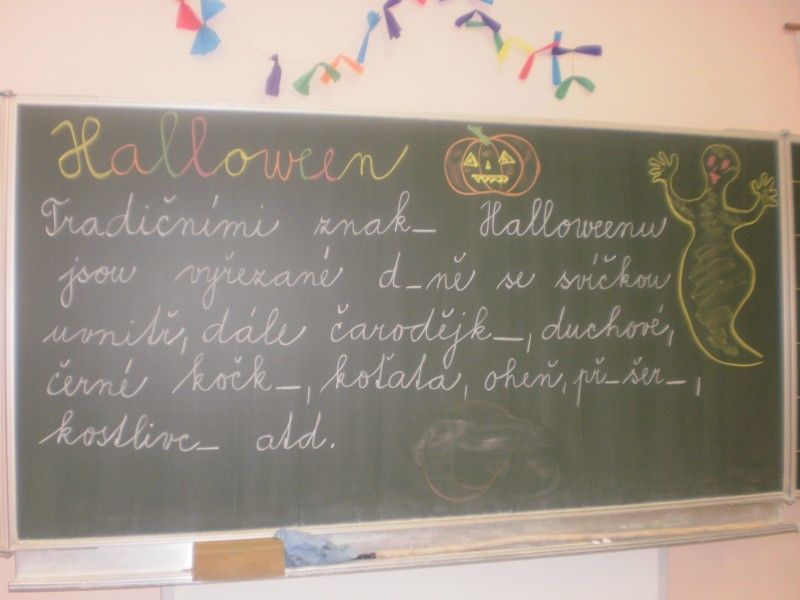 Halloween
Tradičními znak_ Halloweenu
jsou vyřezané d_ně se svíčkou
uvnitř, dále čarodějk_, duchové,
černé kočk_, koťata, oheň, př_šer_,
kostlivc_ atd.